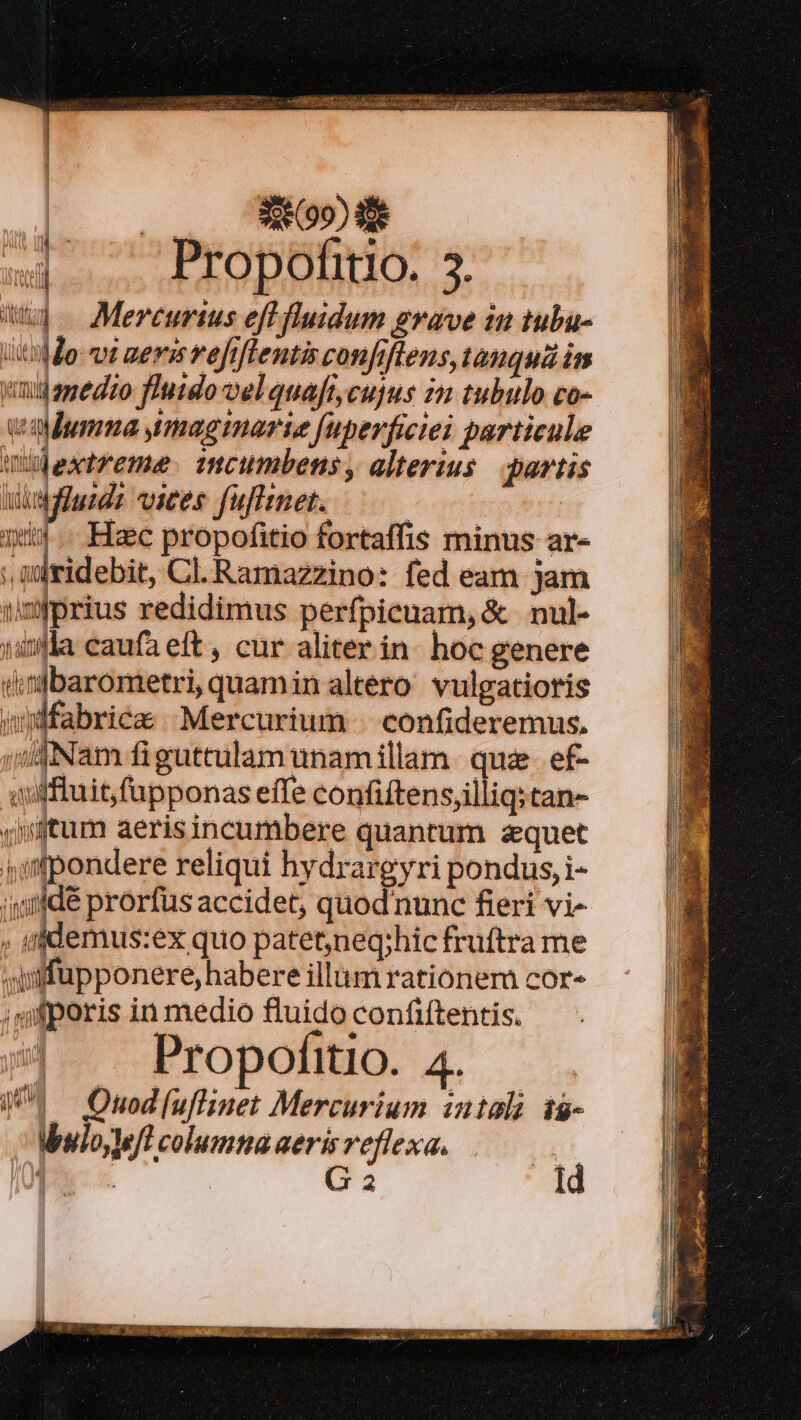 (99)
Propoſitio. 3.
Mercurius eſt fluidum grave in tubu-
lo vi aeris reſiſtentis conſiſtens, tanquã in
medio fluido vel quaſi, cujus in tubulo co-
lumna imaginariæ ſuperficiei particulæ
extremæ incumbens, alterius partis
fluidi vices ſuſtinet.
Hæc propoſitio fortaſſis minus ar-
ridebit, Cl. Ramazzino: ſed eam jam
prius redidimus perſpicuam, & nul-
la cauſa eſt, cur aliter in hoc genere
barometri, quam in altero vulgatioris
fabricæ Mercurium conſideremus.
Nam ſi guttulam unam illam quæ ef-
fluit, ſupponas eſſe conſiſtens, illiq; tan-
tum aeris incumbere quantum æquet
pondere reliqui hydrargyri pondus, i-
dẽ prorſus accidet, quod nunc fieri vi-
demus: ex quo patet, neq; hic fruſtra me
ſupponere, habere illum rationem cor-
poris in medio fluido conſiſtentis.
Propoſitio. 4.
Quod ſuſtinet Mercurium in tali tu-
bulo, eſt columna aeris reflexa.
G 2 Id